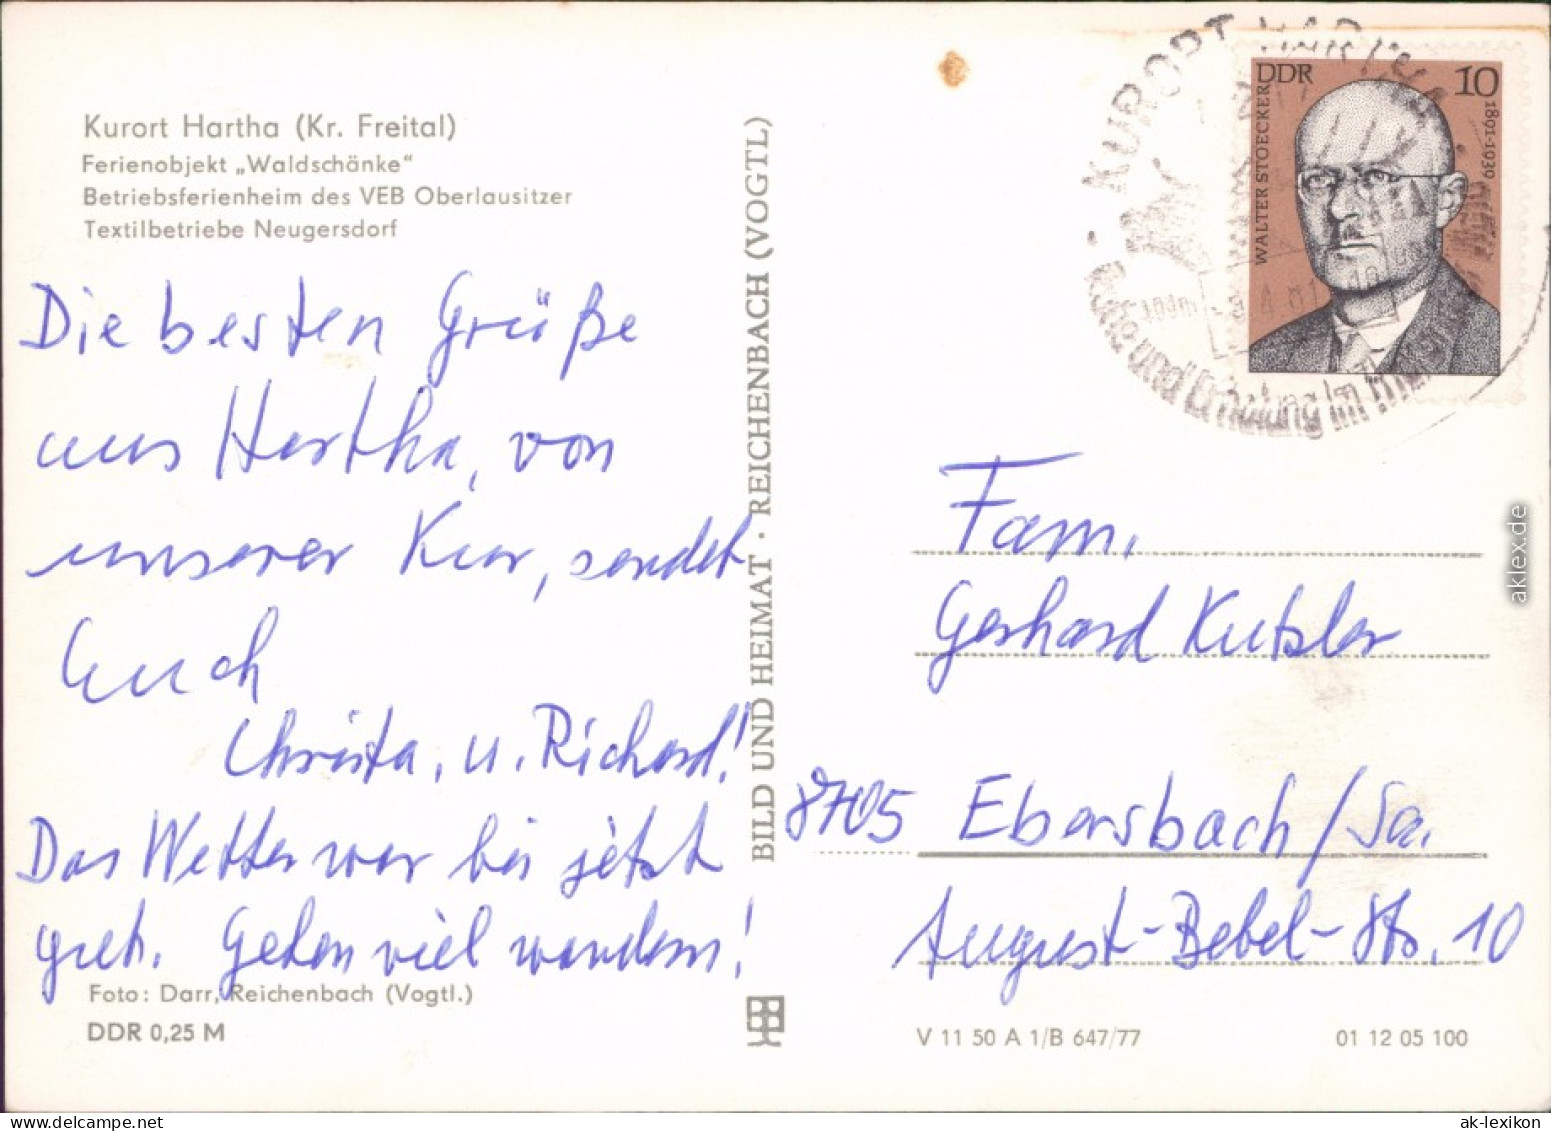 Kurort Hartha (Kr. Freital)
Ferienobjekt „Waldschänke“
Betriebsferienheim des VEB Oberlausitzer
Textilbetriebe Neugersdorf
Die besten Grüße
aus Hartha, von
unserer Kur, sendet
Euch
Christa, u. Richard!
Das Wetter war bis jetzt
gut. Gehen viel wandern!
Foto: Darr, Reichenbach (Vogtl.)
DDR 0,25 M
BILD UND HEIMAT · REICHENBACH (VOGTL)
· KURORT HARTHA ·
Ruhe und Erholung im
DDR 10
WALTER STOECKER
1891-1939
Fam.
Gerhard Kutzler
8705 Ebersbach/Sa.
August-Bebel-Str. 10
V 11 50 A 1/B 647/77
01 12 05 100
aklex.de
ak-lexikon